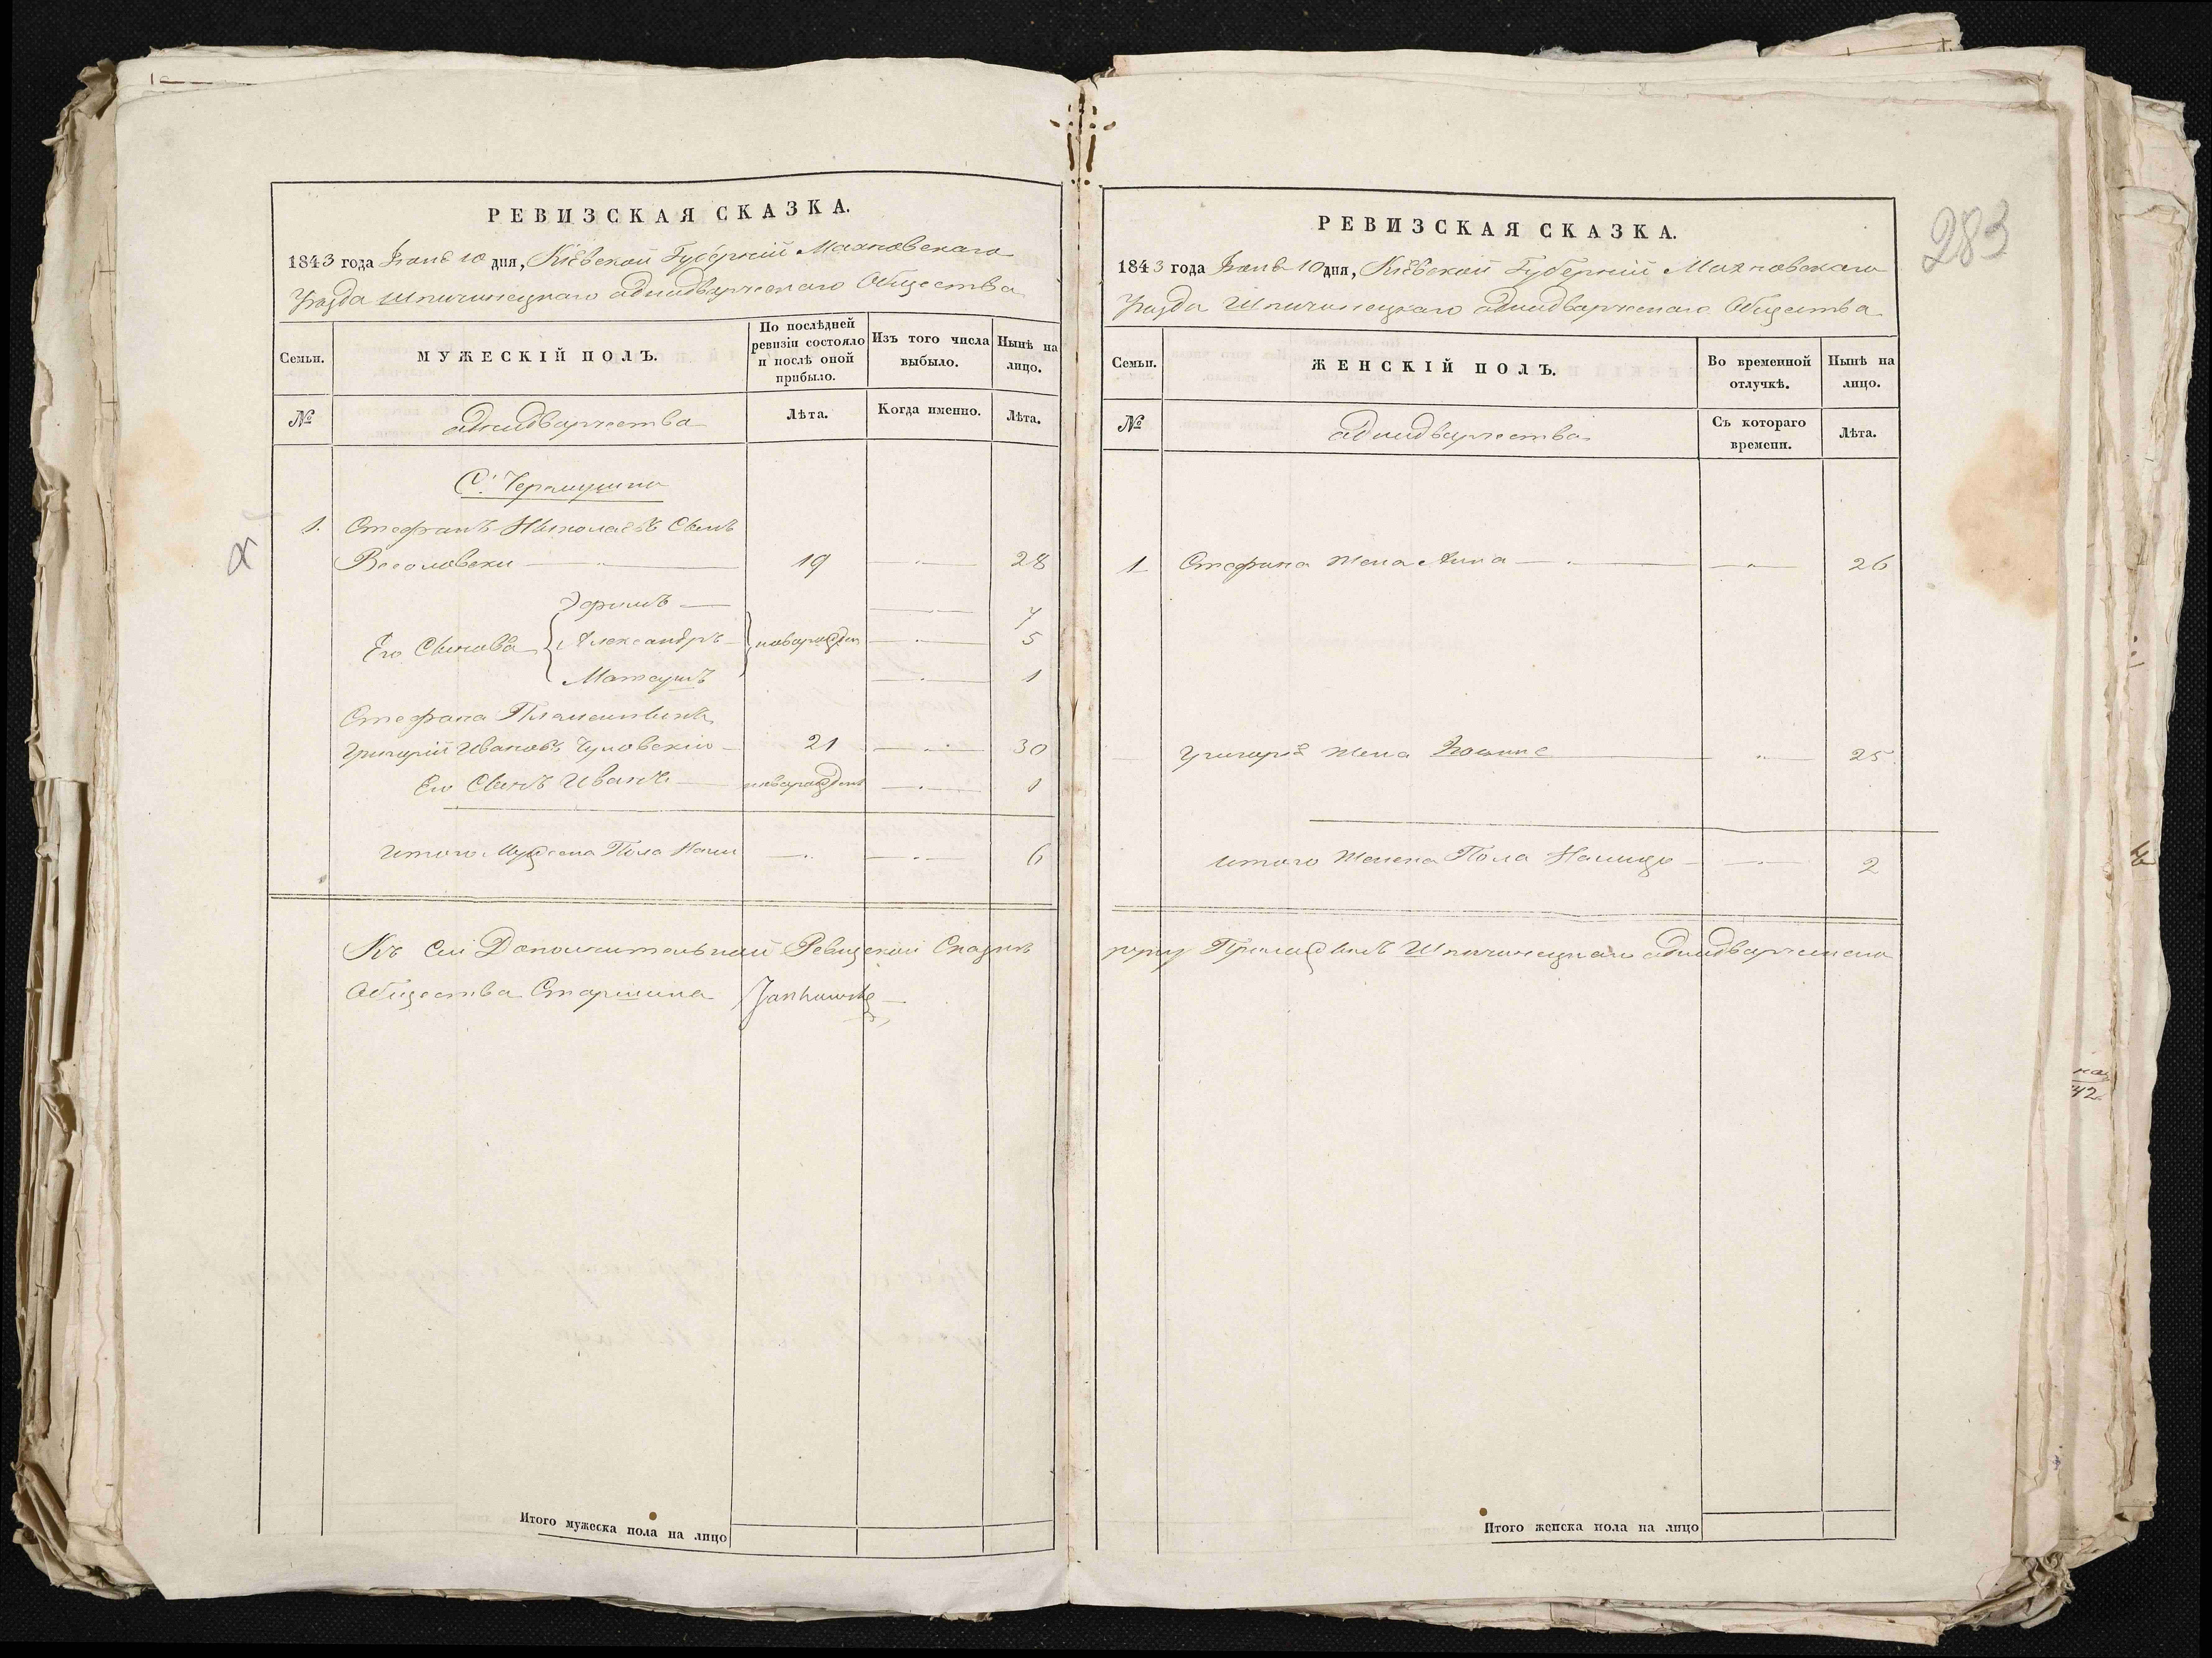 РЕВИЗСКАЯ СКАЗКА.
1843 года Іюня 10 дня, Кіевской Губерніи Махновскаго
Уезда Шпичинецкаго адnодворческаго Общества
Семьи.
МУЖЕСКІЙ ПОЛЪ.
По послѣдней
ревизіи состояло
и послѣ оной
прибыло.
Изъ того числа
выбыло.
Нынѣ на
лицо.
№
аднодворчества
Лѣта.
Когда именно.
Лѣта.
С.
1. Стефанъ Николаевъ Сынъ
19 28
Эфимъ 7
Его Сынова Александръ новорожден 5
Матеушъ 1
Стефана Племянникъ
Григорій Ивановъ 21 30
Его Сынъ Иванъ новорожденъ 1
Итого Мужеска Пола Нали 6
Къ сей Дополнительной Ревизской Сказки
Общества Старшина Jankowski
Итого мужеска пола на лицо
283
РЕВИЗСКАЯ СКАЗКА.
1843 года Іюня 10 дня, Кіевской Губерніи Махновскаго
Уезда Шпичинецкаго аднодворческаго Общества
Семьи.
ЖЕНСКІЙ ПОЛЪ.
Во временной
отлучкѣ.
Нынѣ на
лицо.
№
аднодворчества
Съ котораго
времени.
Лѣта.
1 Стефана Жена Анна 26
Григорія Жена 25
Итого Женска Пола Налицо 2
руку Приложилъ Шпичинецкаго аднодворческаго
Итого женска пола на лицо